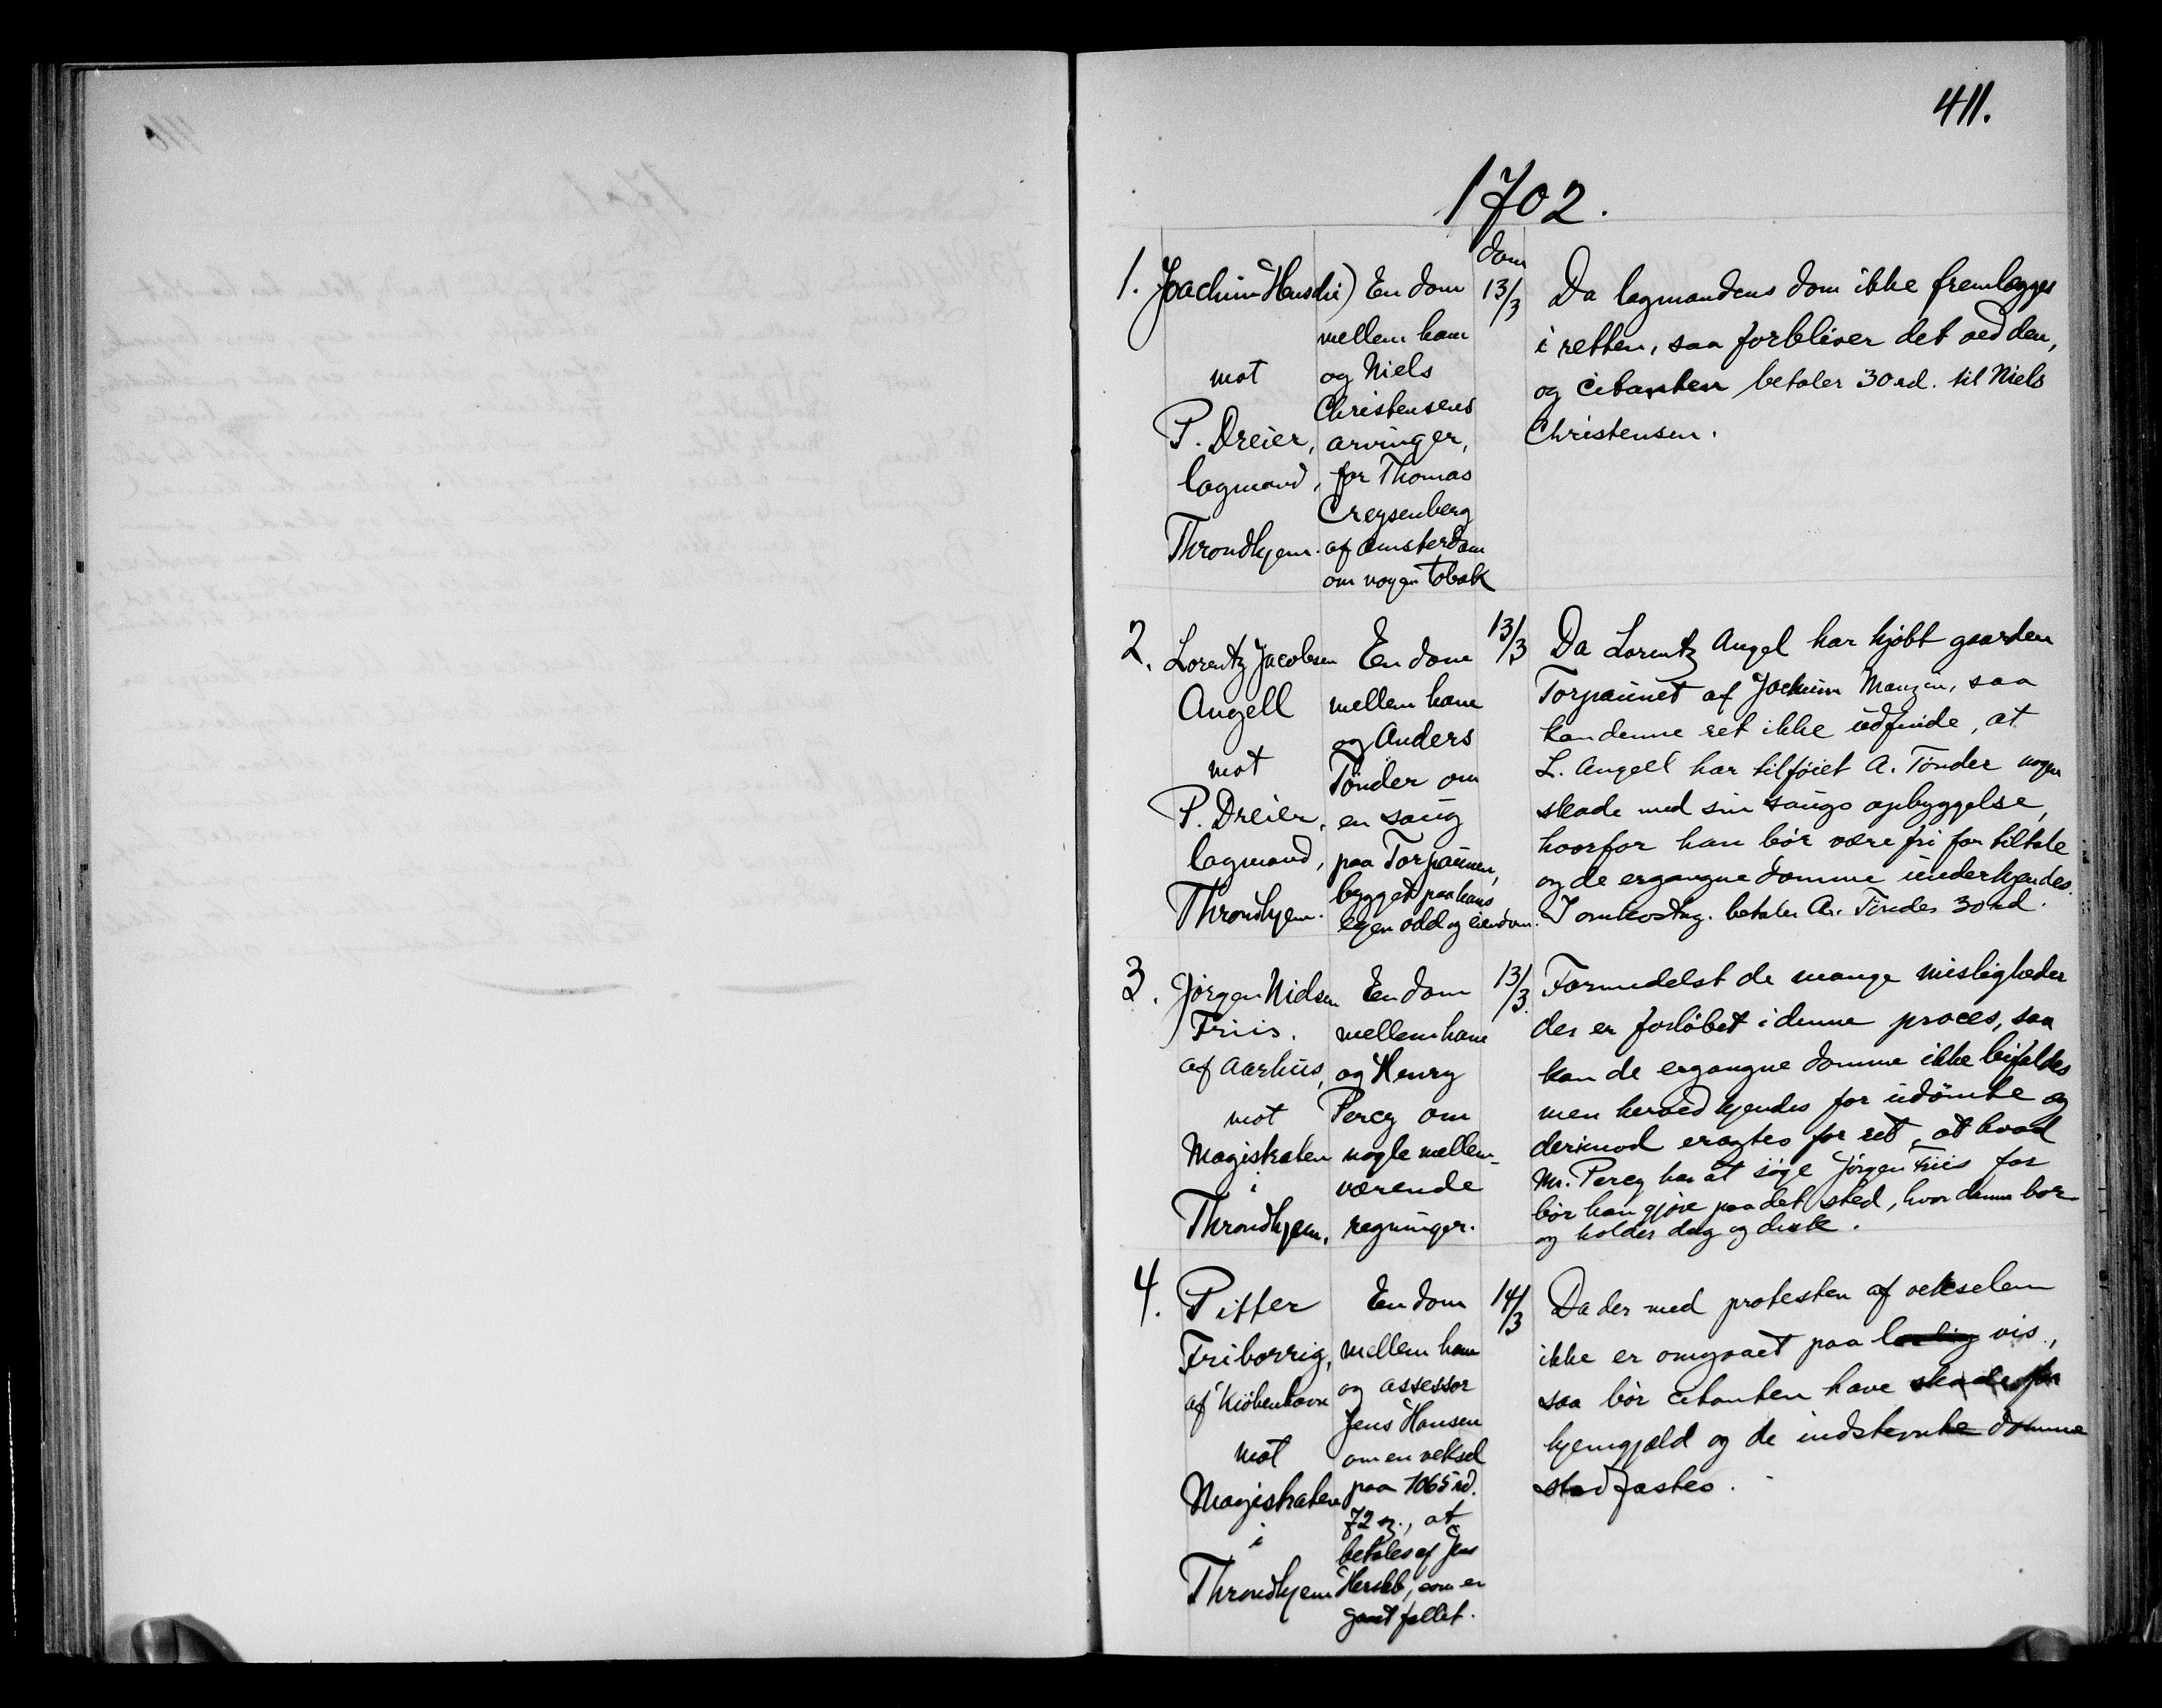 411.
1702.
dom
1. Joachim
mot
P. Dreier,
lagmand,
Throndhjem.
En dom
mellem ham
og Niels
Christensens
arvinger,
for Thomas
Creysenberg
af Amsterdam
om nogen tobak
13/3
Da lagmandens dom ikke fremlægges
i retten, saa forbliver det ved den,
og citanten betaler 30 rd. til Niels
Christensen.
2. Lorentz Jacobsen
Angell
mot
P. Dreier,
lagmand,
Throndhjem.
En dom
mellem ham
og Anders
Tönder om
en saug
paa Torpaunen,
bygget paa hans
egen odd og eiendom.
13/3
Da Lorentz Angel har kjöbt gaarden
Torpaunet af Jochum, saa
kan denne ret ikke udfinde, at
L. Angell har tilföiet A. Tönder nogen
skade med sin saugs opbyggelse,
hvorfor han bör være fri for tiltale
og de ergangne domme underkjendes.
I omkostng. betaler A. Tönder 30 rd.
3. Jörgen Nielsen
Friis.
af Aarhus,
mot
Magistraten
i
Throndhjem.
En dom
mellem ham
og Henry
Percy om
nogle mellem-
værende
regninger.
13/3.
Formedelst de mange misligheder
der er forlöbet i denne proces, saa
kan de ergangne domme ikke bifaldes
men herved kjendes for udömte og
derimod eragtes for ret, at hvad
Mr. Percy har at söge Jörgen Friis for
bör han gjöre paa det sted, hvor denne bor
og holder dug og disk.
4. Pitter
Friborrig,
af Kiöbenhavn
mot
Magistraten
i
Throndhjem
En dom
mellem ham
og assessor
Jens Hansen
om en veksel
paa 1065 rd.
72 sz., at
betales af Jens
som er
gaaet fallit.
14/3
Da der med protesten af vekselen
ikke er omgaaet paa lovlig vis,
saa bör citanten have skade for
hjemgjæld og de indstevnte domme
stadfæstes.